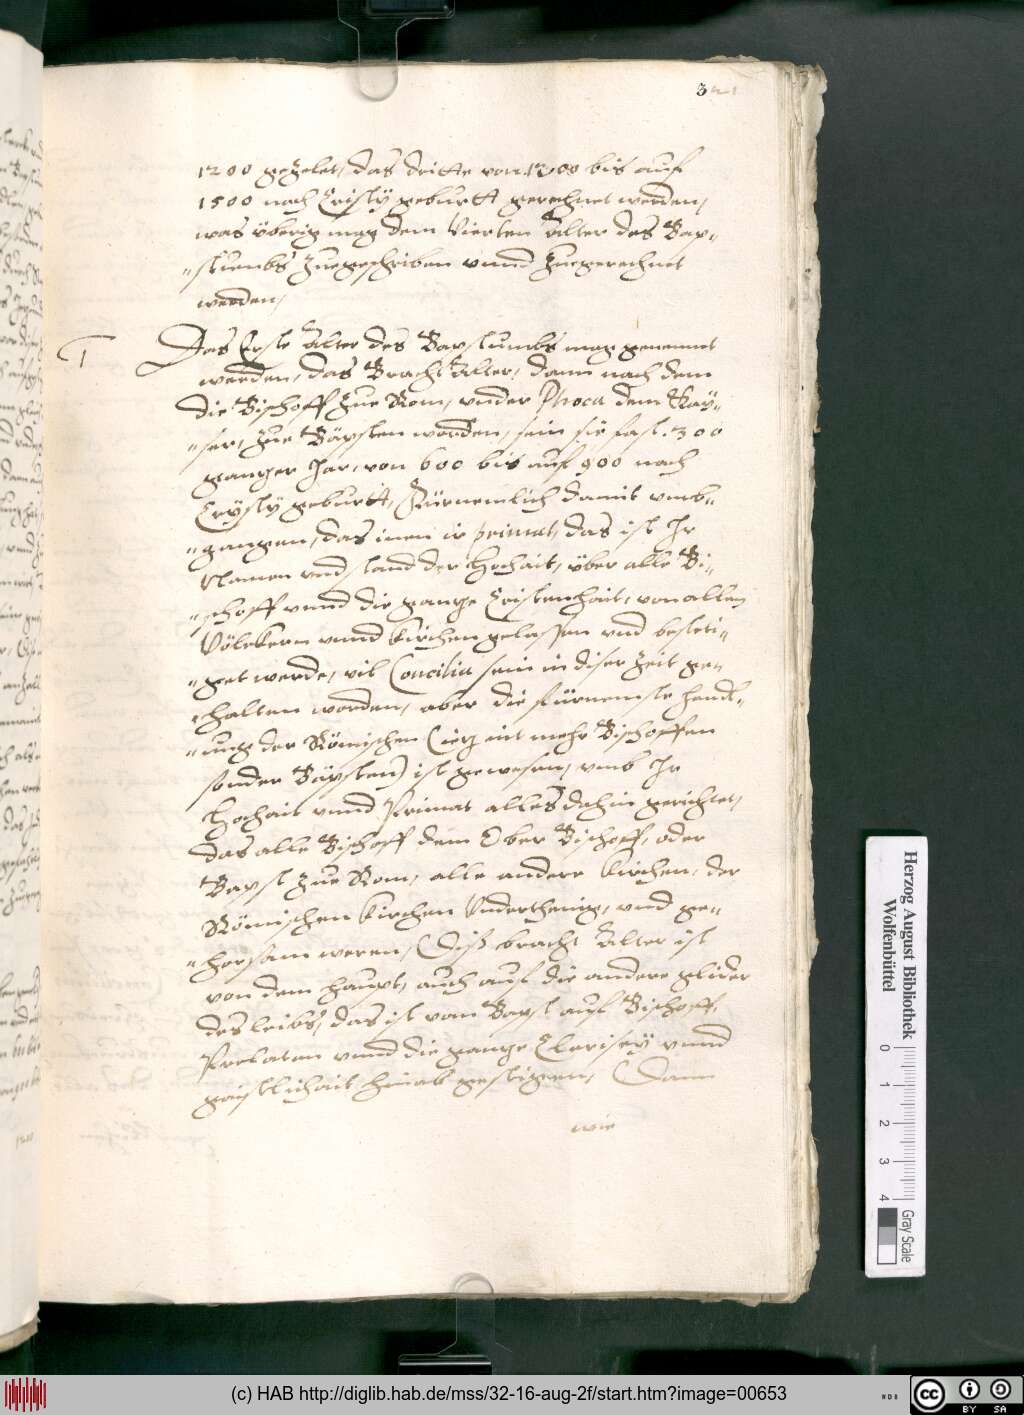 321
1200 gezelet, das dritte von 1200 bis auf
1500 nach Cristy geburtt gerechnet werden,
was überig mag dem Vierten Alter des Bap„
„stumbs zuegeschriben vnnd zuegerechnet
werden,
Das Erste Alter des Bapstumbs mag genennet
werden, das Bracht Alter, dann nach dem
die Bischoff zue Rom, vnder Phoca dem Kay„
„ser, zue Bäpsten worden, sein sie fast 300
gantzer Jar, von 600 bis auf 900 nach
Crysty geburtt, Fürnemlich damit vmb„
„gangen, das inen ir primat, das ist Ir
Namen vnd stand der Hochait, über alle Bi„
„schoff vnnd die gantze Cristenhait, von allen
Völckern vnnd Kirchen gelassen vnd besteti„
„get werde, vil Concilia sein in diser zeit ge„
„halten worden, aber die fürnemste handl„
„ung der Römischen (ietz nit mehr Bischoffen
sonder Bäpsten) ist gewesen, vmb Ir
Hochait vnnd Primat alles dahin gerichtet,
das alle Bischoff dem Ober Bischoff, oder
Bapst zue Rom, alle andere Kirchen, der
Römischen Kirchen Vnderthenig, vnd ge„
„horsam weren, Diß bracht Alter ist
von dem haupt, auch auf die andere glider
des leibs, das ist vom Bapst auf Bischoff,
Prelaten vnnd die gantze Clerisey vnnd
gaistlichait hinab gestigen, Dann
wie
Herzog August Bibliothek
Wolfenbüttel
0 1 2 3 4
Gray Scale
(c) HAB http://diglib.hab.de/mss/32-16-aug-2f/start.htm?image=00653
WDB
cc BY SA